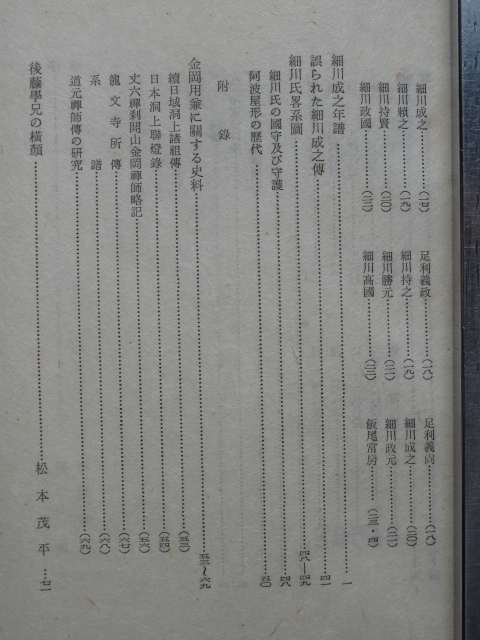 細川成之……(一七)　足利義政……(一八)　足利義尚……(一八)
細川頼之……(一九)　細川持之……(一九)　細川成之……(二〇)
細川持賢……(二〇)　細川勝元……(二一)　細川政元……(二一)
細川政國……(二二)　細川高國……(二二)　飯尾常房……(二三・四)
細川成之年譜……一
誤られた細川成之傳……四一
細川氏畧系圖……四八—四九
細川氏の國守及び守護……四八
阿波屋形の歴代……五〇
附錄
金岡用兼に關する史料……五三〜六九
續日域洞上諸祖傳……(五三)
日本洞上聯燈錄……(五四)
丈六禪刹開山金岡禪師略記……(五六)
龍文寺所傳……(六七)
系譜……(六八)
道元禪師傳の研究……(六九)
後藤學兄の橫顏……松本茂平…七一